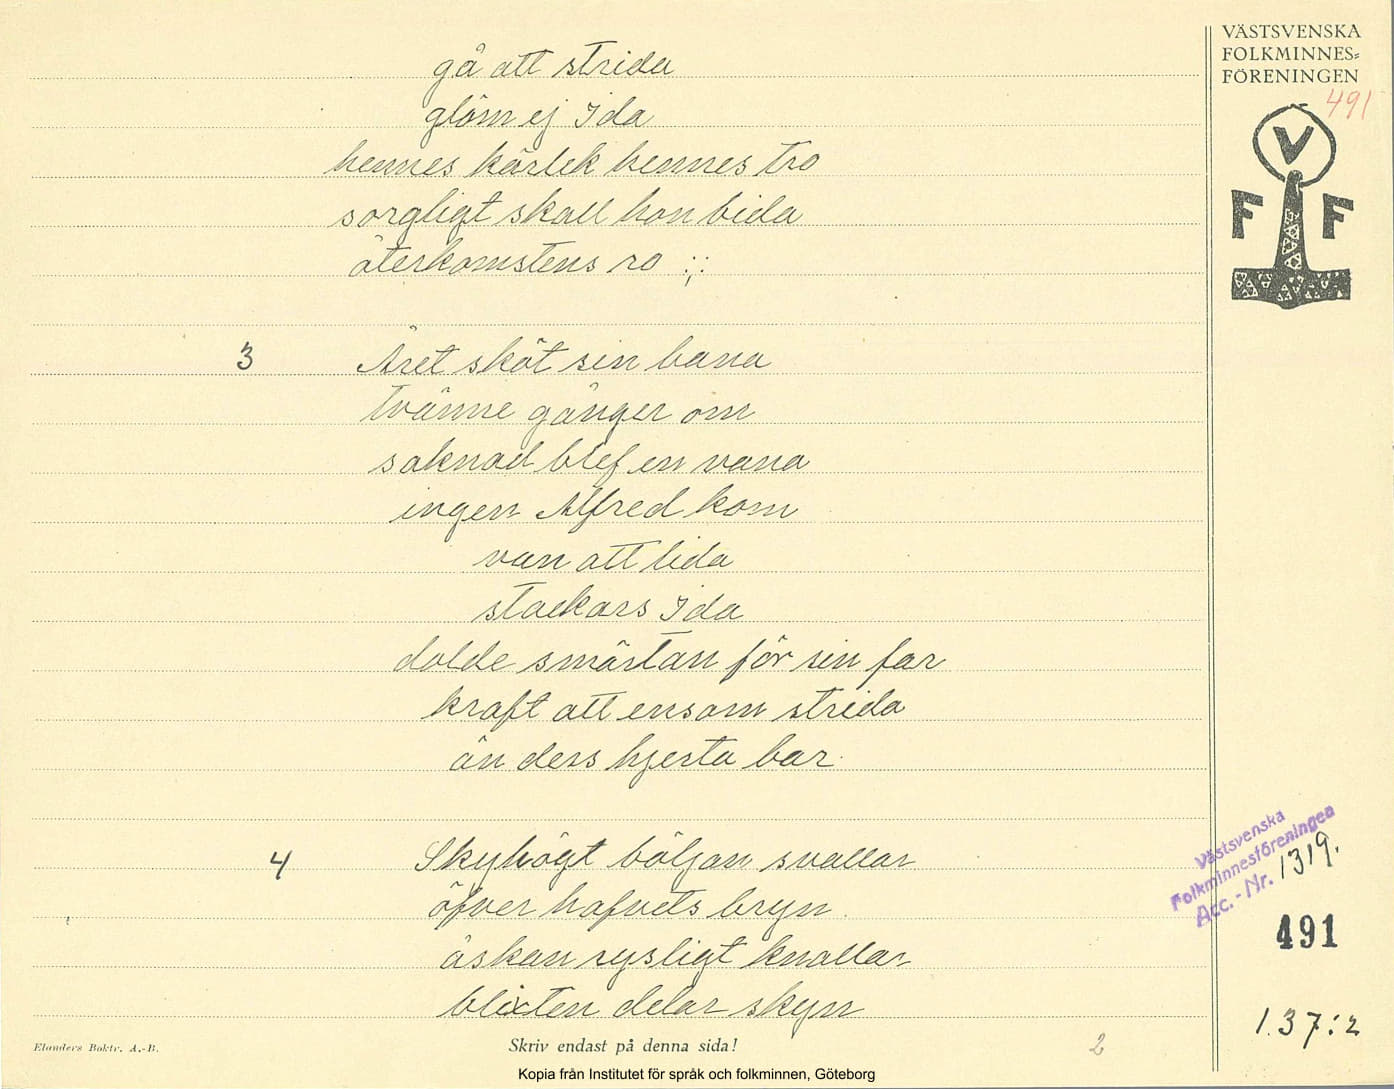 VÄSTSVENSKA
FOLKMINNES=
FÖRENINGEN
491
V
F F
gå att strida
glöm ej Ida
hennes kärlek hennes tro
sorgligt skall hon bida
återkomstens ro :;:
3 Året sköt sin bana
tvänne gånger om
saknad blef en vana
ingen Alfred kom
van att lida
stackars Ida
dolde smärtan för sin far
kraft att ensam strida
än dess hjerta bar.
4 Skyhögt böljan svallar
öfver hafvets bryn
åskan rysligt knallar
blixten delar skyn
Västsvenska
Folkminnesföreningen
Acc.-Nr. 1319.
491
1.37:2
Elanders Boktr. A.-B.
Skriv endast på denna sida!
2
Kopia från Institutet för språk och folkminnen, Göteborg